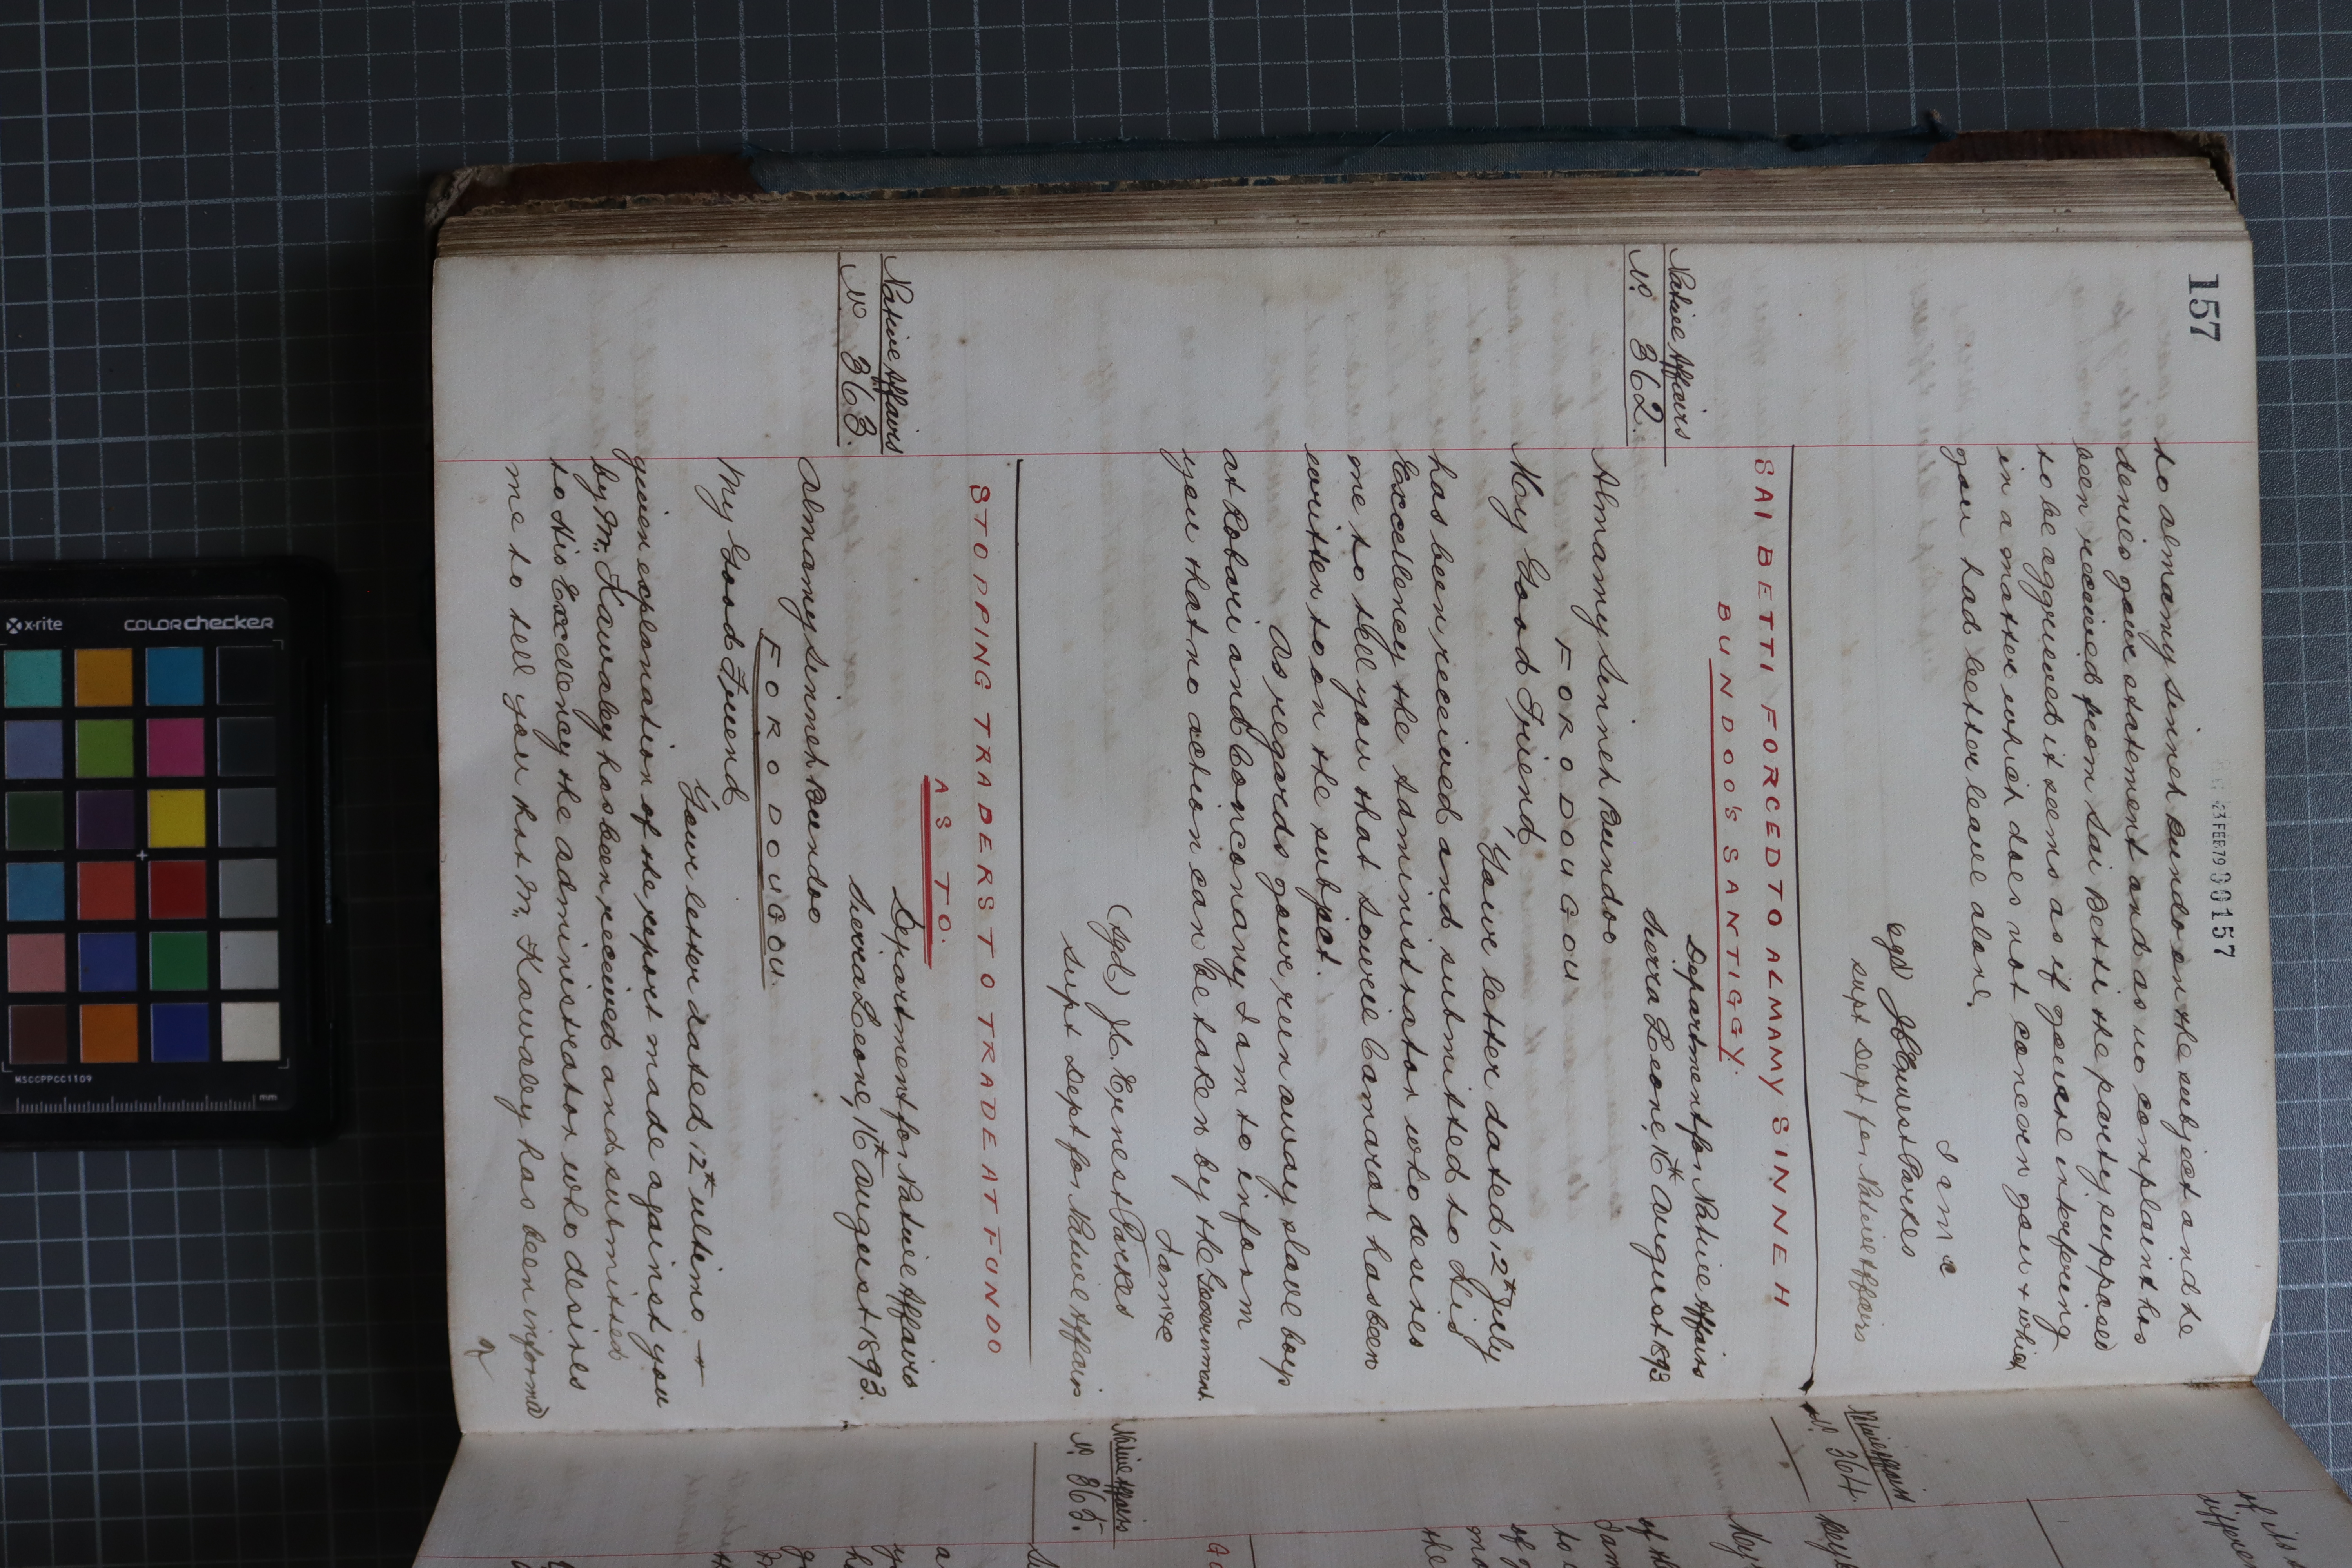 157
23 FEB 79 000157
to Almamy Sinneh Bundo on the subject and he
denies your statement and as no complaint has
been received from Sai Betti the party supposed
to be aggrieved it seems as if you are interfering
in a matter which does not concern you & which
you had better leave alone.
I am &c
sgd) J C Ernest Parkes
Supt Dept for Native Affairs
SAI BETTI FORCED TO ALMAMY SINNEH
BUNDOO'S SANTIGGY.
Native Affairs
No. 362.
Department for Native Affairs
Sierra Leone, 16th August 1893
Almamy Sinneh Bundoo
FORODOUGOU
My Good Friend,
Your letter dated 12th July
has been received and submitted to His
Excellency the Administrator who desires
me to tell you that Sourie Camarah has been
written to on the subject.
As regards your run away slave boys
at Robari and Conconany I am to inform
you that no action can be taken by the Government.
I am &c
(Sgd) J.C. Ernest Parkes
Supt Dept for Native Affairs
STOPPING TRADERS TO TRADE AT FUNDO
AS TO.
Native Affairs
No. 363.
Department for Native Affairs
Sierra Leone, 16th August 1893.
Almamy Sinneh Bundoo
FORODOUGOU.
My Good Friend
Your letter dated 12th ultimo —
given explanation of the report made against you
by Mr. Kawaley has been received and submitted
to His Excellency the Administrator who desires
me to tell you that Mr. Kawaley has been informed
Native Affairs
No. 364.
Native Affairs
No. 365.
of its
x-rite
colorchecker
MSCCPPCC1109
mm